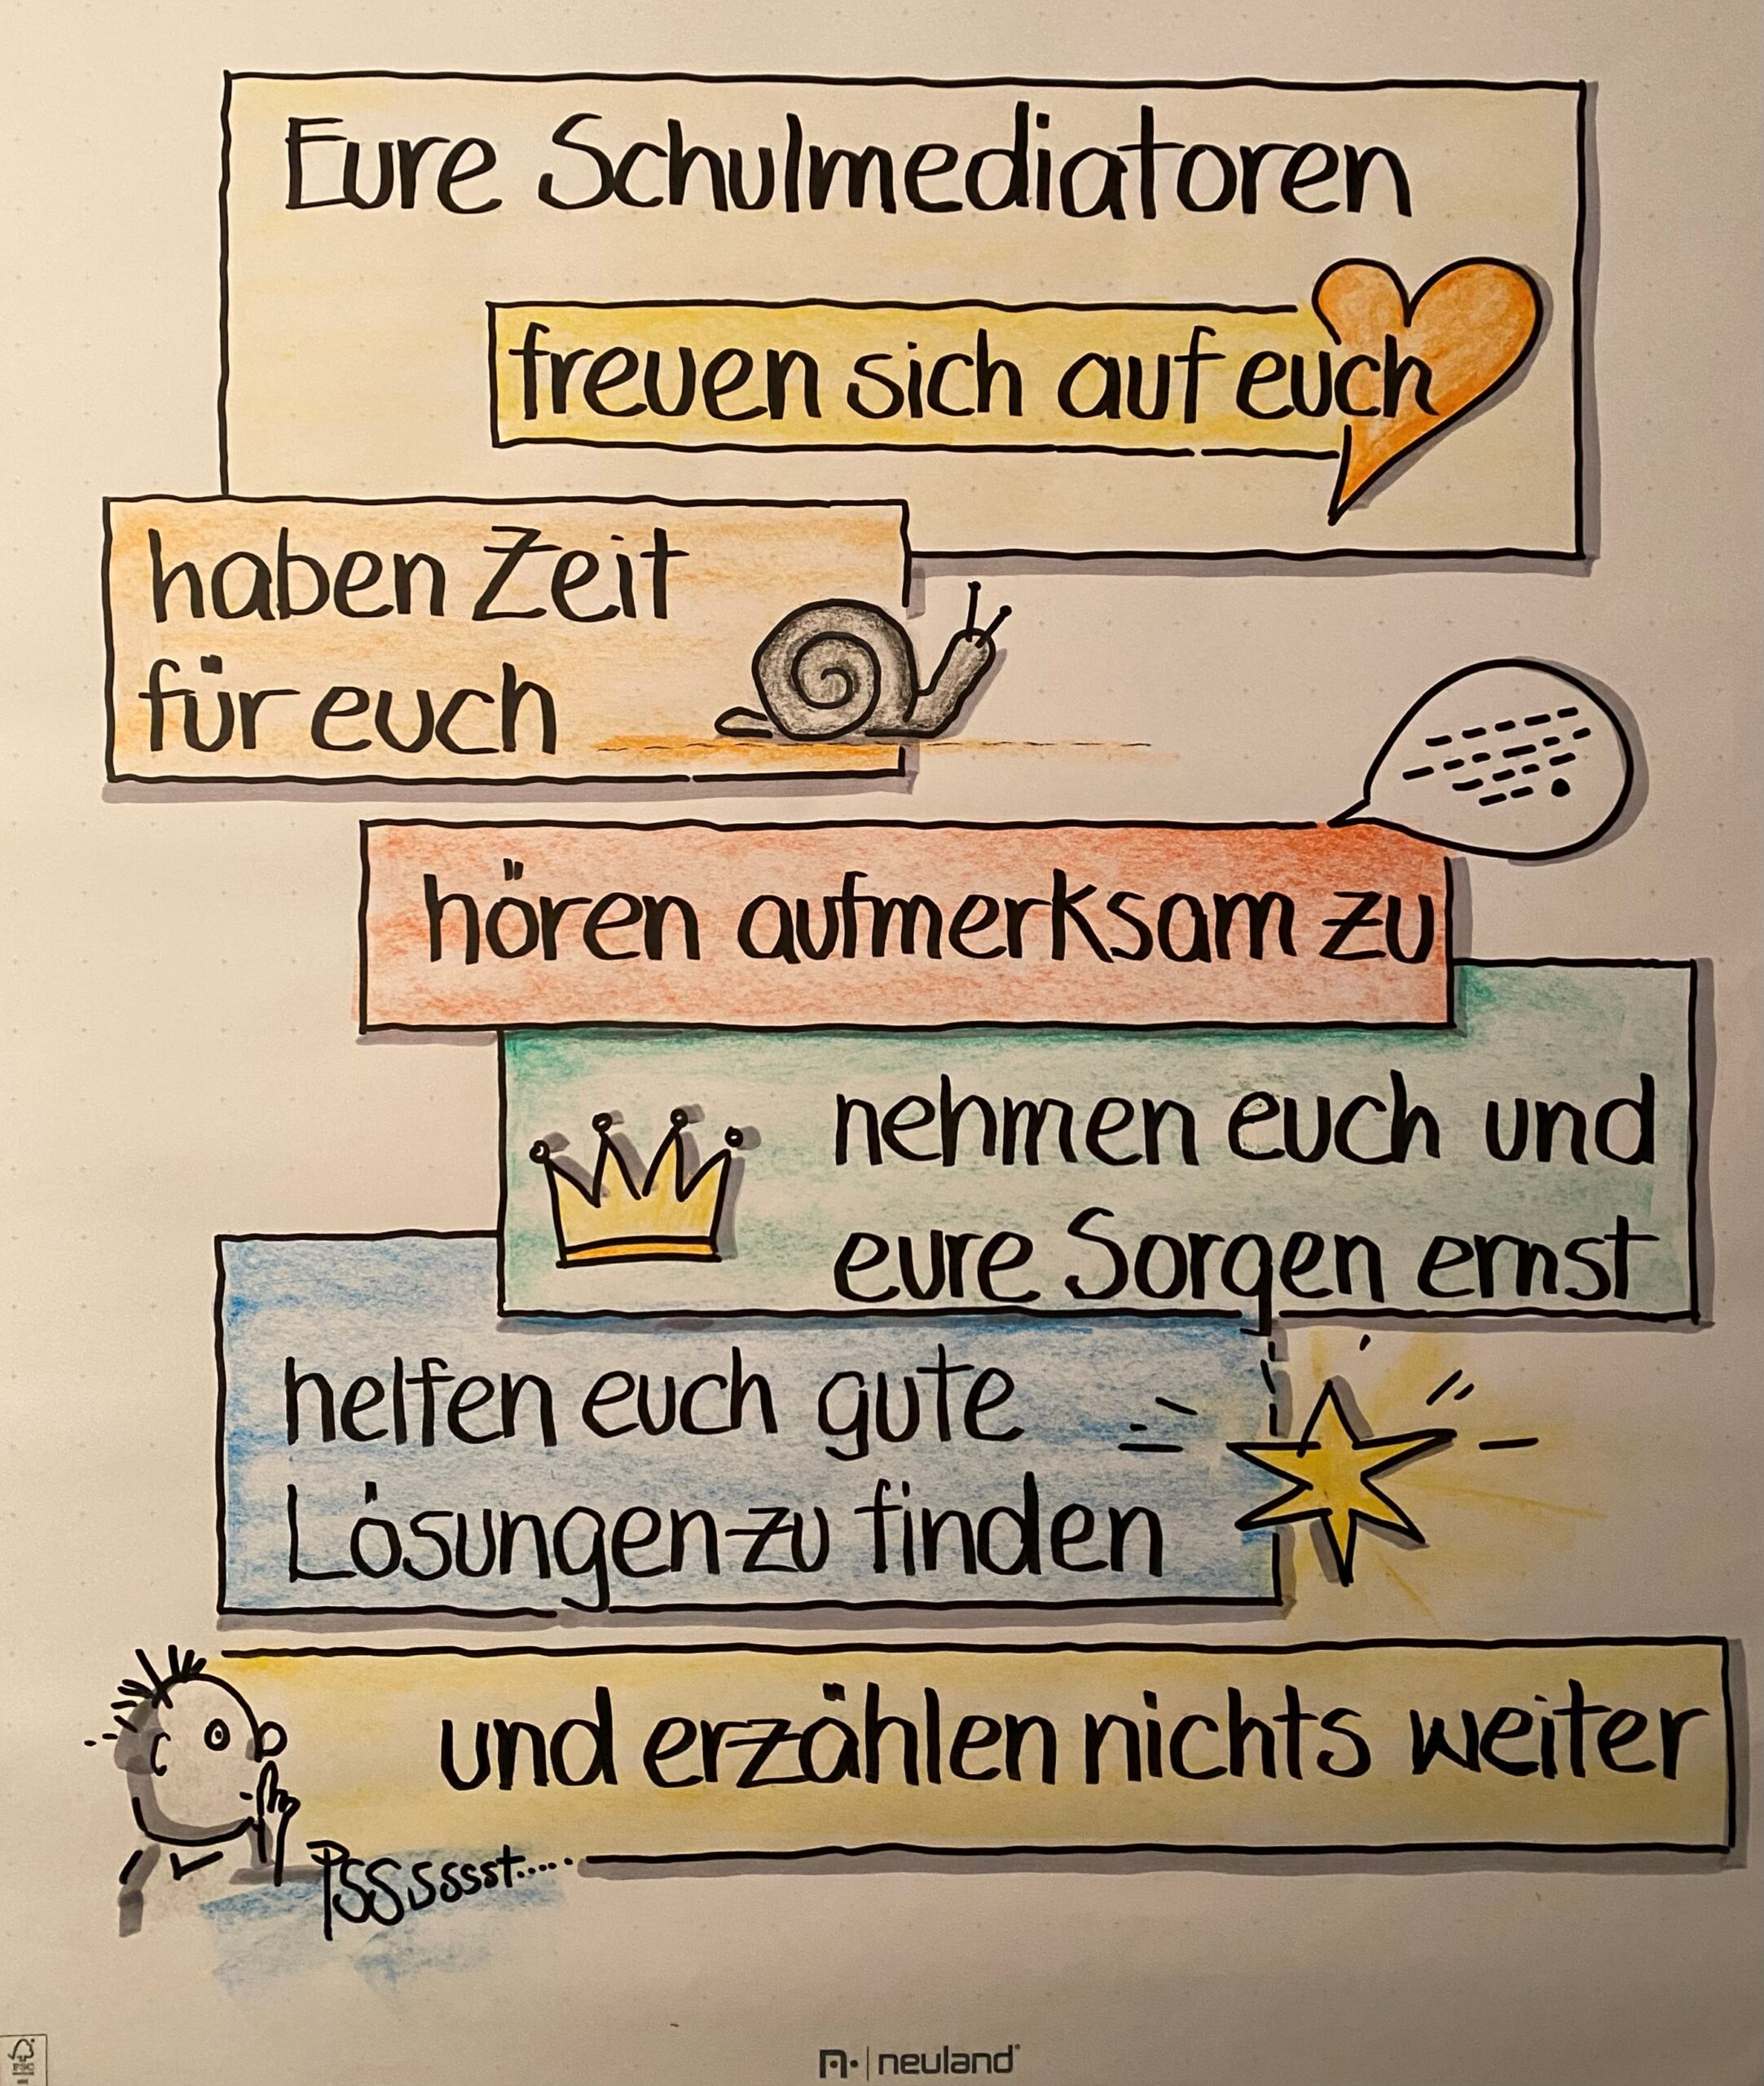 Eure Schulmediatoren
freuen sich auf euch
haben Zeit
für euch
hören aufmerksam zu
nehmen euch und
eure Sorgen ernst
helfen euch gute
Lösungen zu finden
und erzählen nichts weiter
PSSsssst.....
FSC
neuland